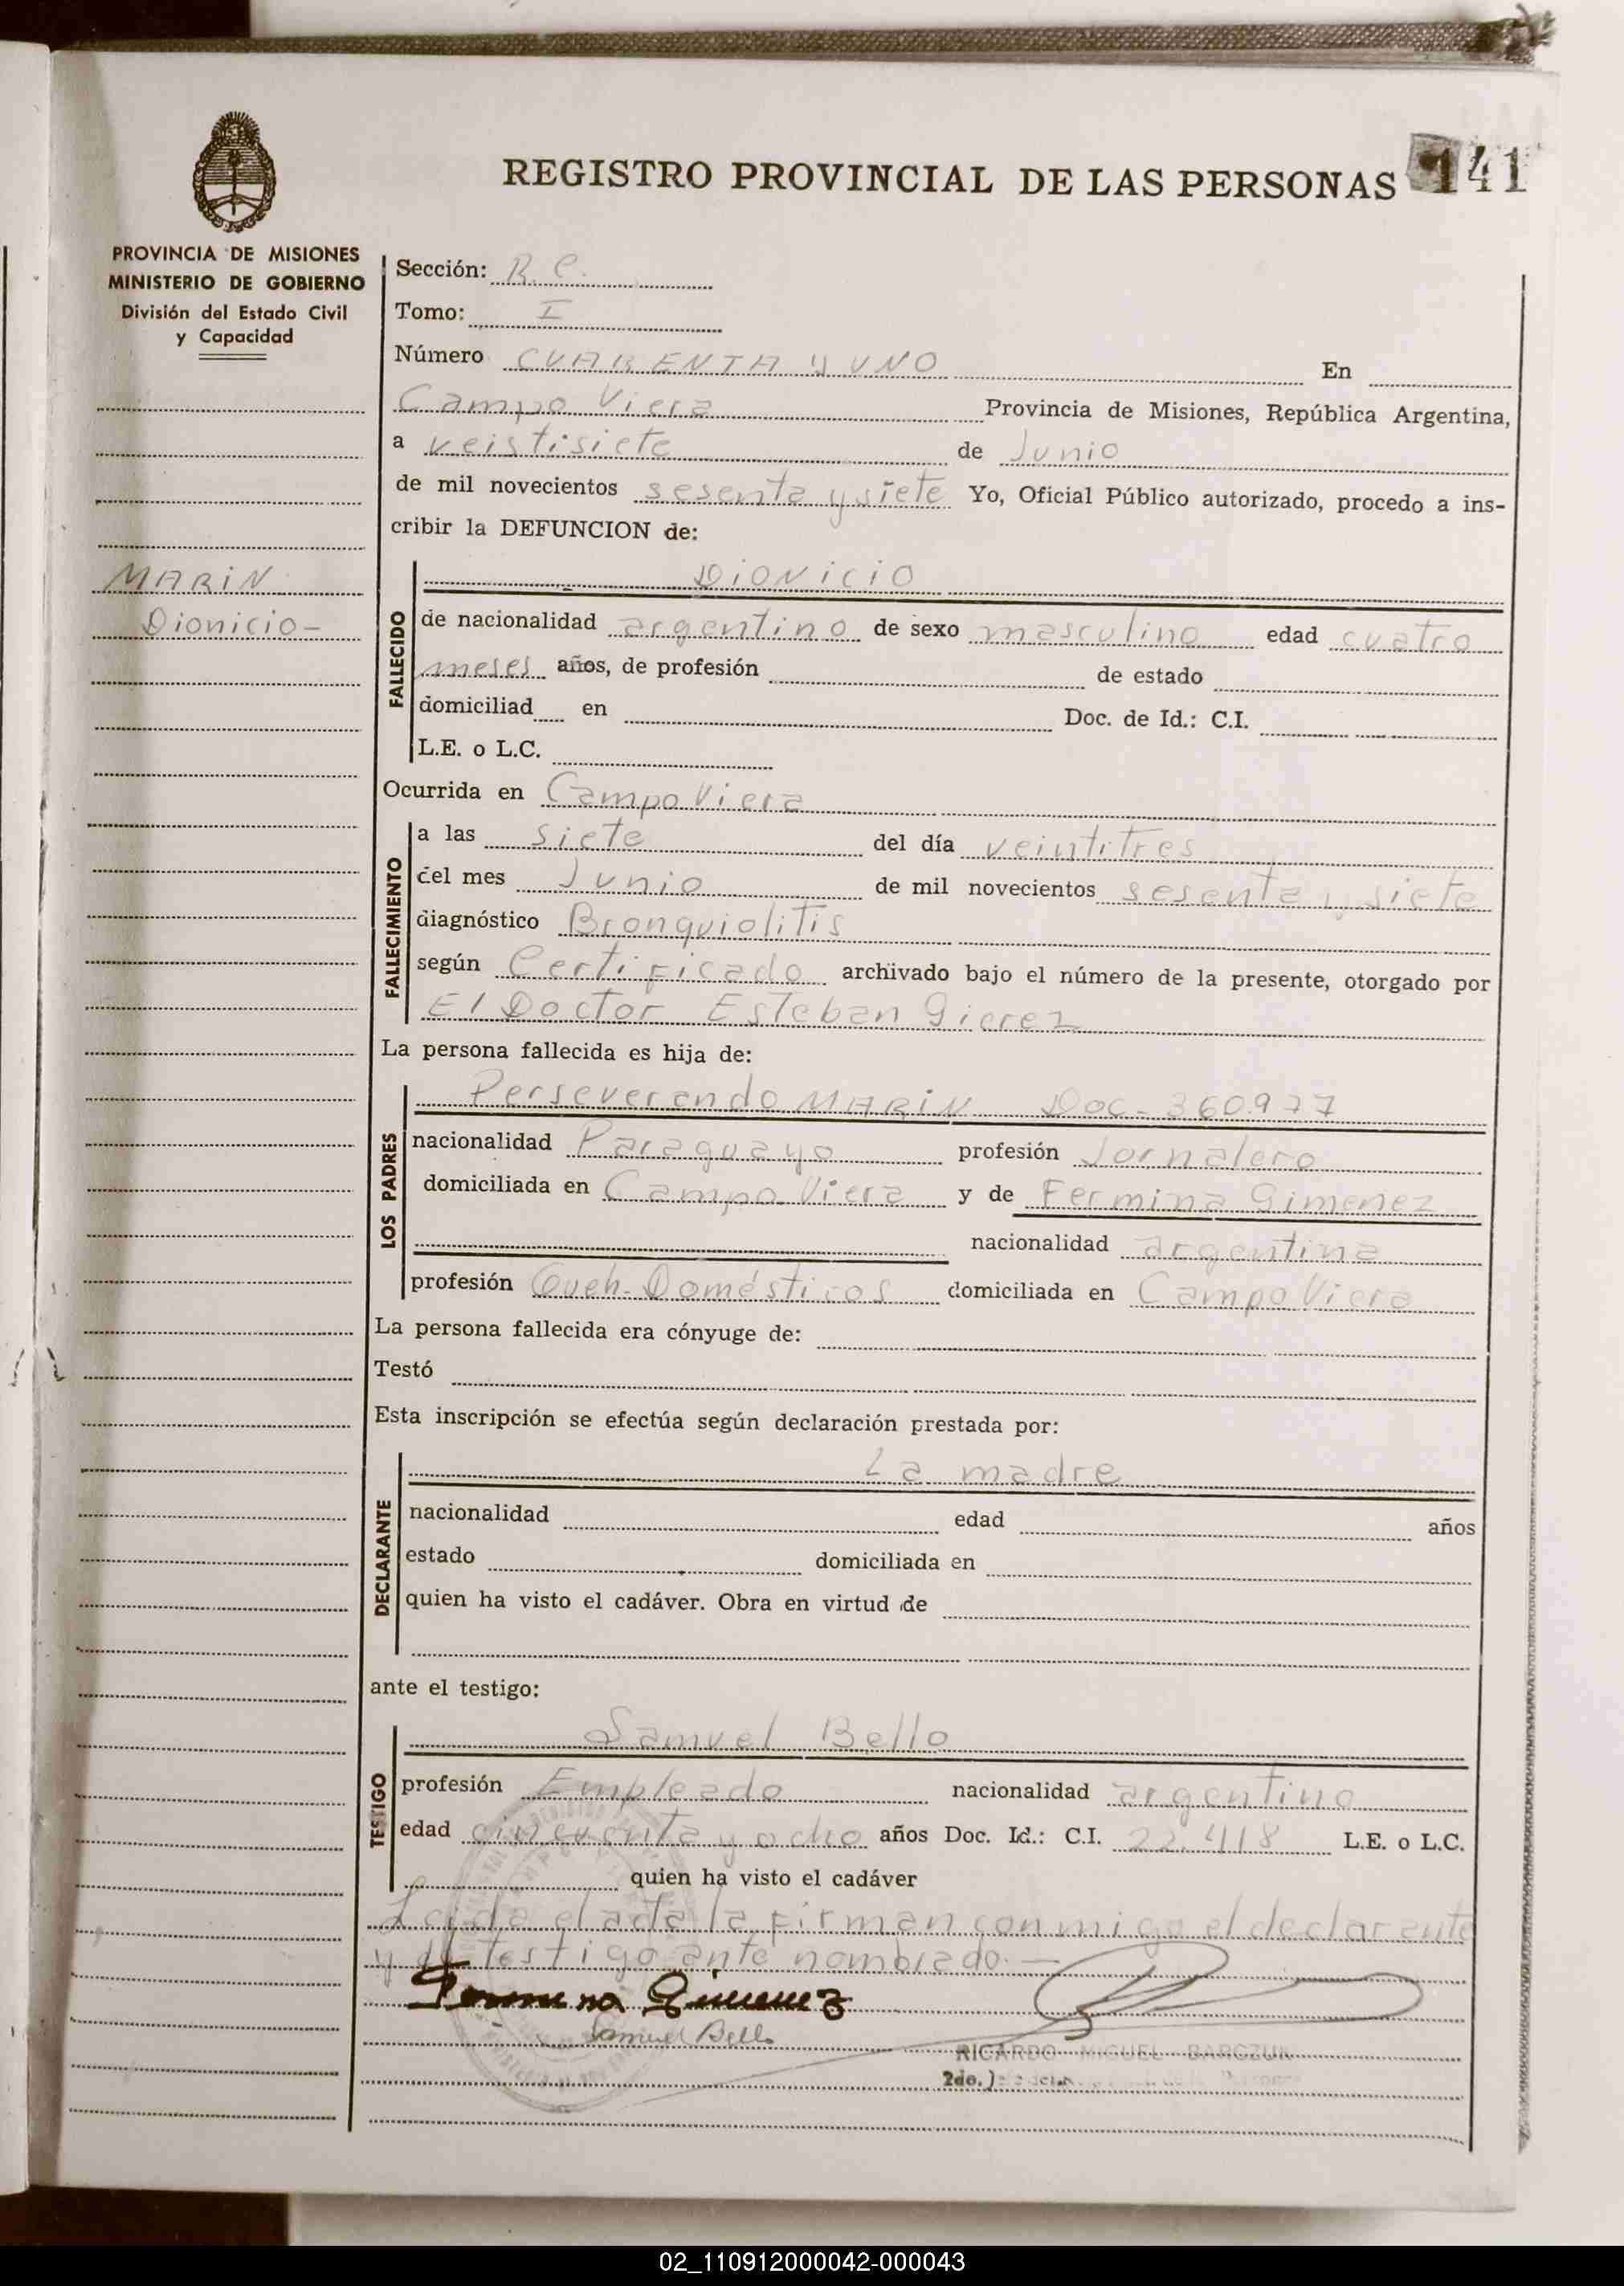 REGISTRO PROVINCIAL DE LAS PERSONAS 141
PROVINCIA DE MISIONES
MINISTERIO DE GOBIERNO
División del Estado Civil
y Capacidad
MARIN
Dionicio-
Sección: R. C.
Tomo: I
Número CUARENTA y UNO En
Campo Viera Provincia de Misiones, República Argentina,
a veistisiete de Junio
de mil novecientos sesenta y siete Yo, Oficial Público autorizado, procedo a ins-
cribir la DEFUNCION de:
FALLECIDO
DiONiciO
de nacionalidad argentino de sexo masculino edad cuatro
meses años, de profesión de estado
domiciliad en Doc. de Id.: C.I.
L.E. o L.C.
Ocurrida en Campo Viera
FALLECIMIENTO
a las siete del día veintitres
del mes Junio de mil novecientos sesenta y siete
diagnóstico Bronquiolitis
según Certificado archivado bajo el número de la presente, otorgado por
El Doctor Esteban Gierez
La persona fallecida es hija de:
LOS PADRES
Perseverando MARiN Doc- 360977
nacionalidad Paraguayo profesión Jornalero
domiciliada en Campo Viera y de Fermina Gimenez
nacionalidad argentina
profesión Queh. Domésticos domiciliada en Campo Viera
La persona fallecida era cónyuge de:
Testó
Esta inscripción se efectúa según declaración prestada por:
DECLARANTE
La madre
nacionalidad edad años
estado domiciliada en
quien ha visto el cadáver. Obra en virtud de
ante el testigo:
TESTIGO
Samuel Bello
profesión Empleado nacionalidad argentino
edad cincuenta y ocho años Doc. Id.: C.I. 22.418 L.E. o L.C.
quien ha visto el cadáver
Leida el acta la firman conmigo el declarante
y el testigo ante nombrado.—
Fermina Gimenez
Samuel Bello
RICARDO MIGUEL BARCZUK
2do. Jefe
02_110912000042-000043